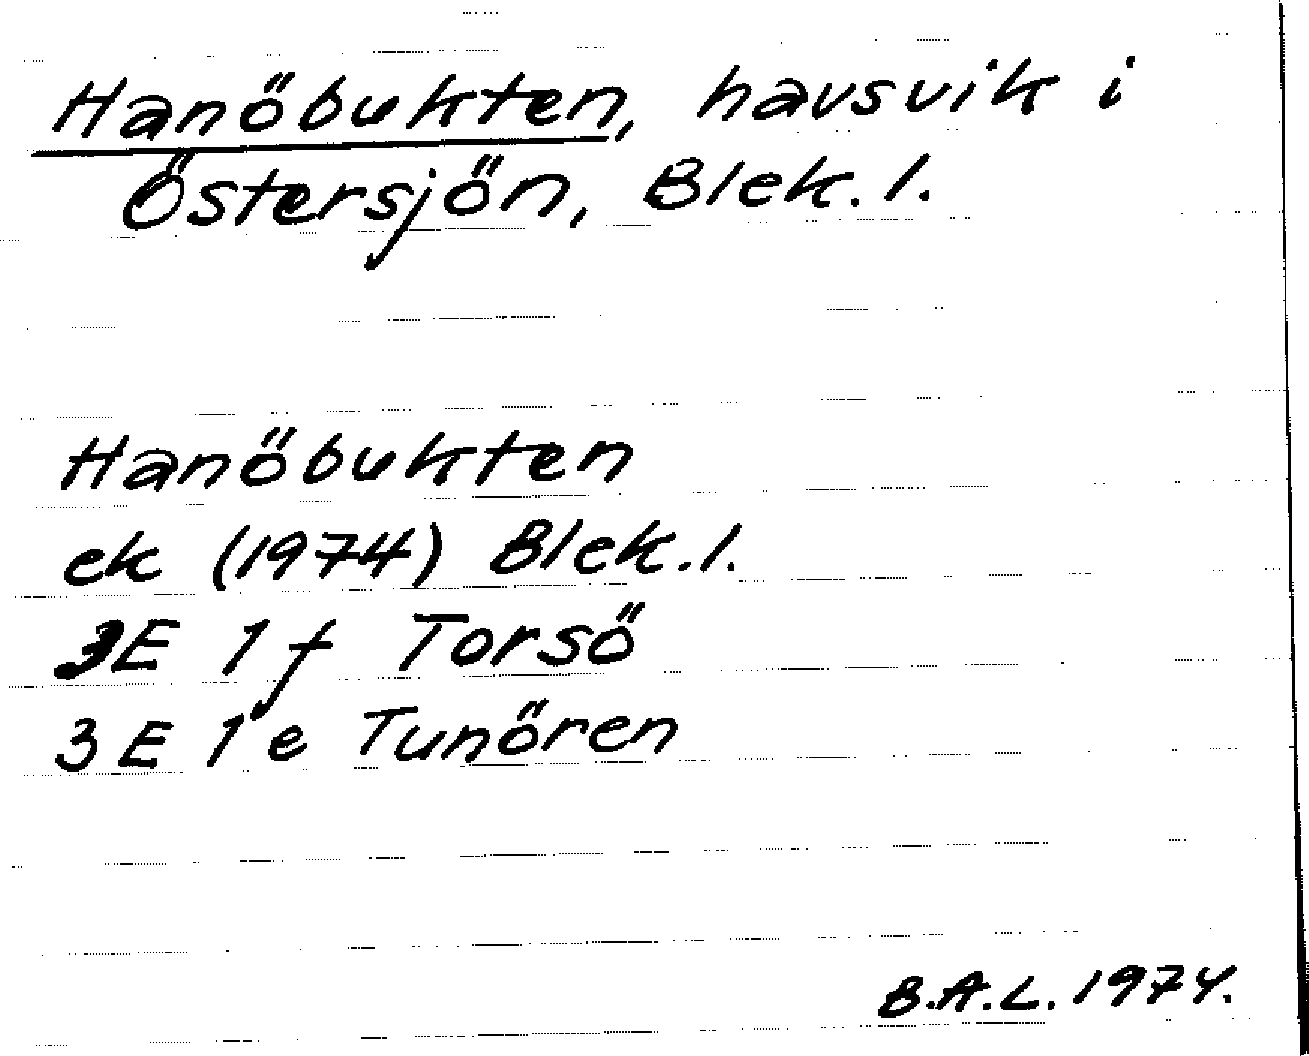 Hanöbukten, havsvik i
Östersjön, Blek. l.
Hanöbukten
ek (1974) Blek. l.
3E 1 f Torsö
3E 1 e Tunören
B.A.L. 1974.